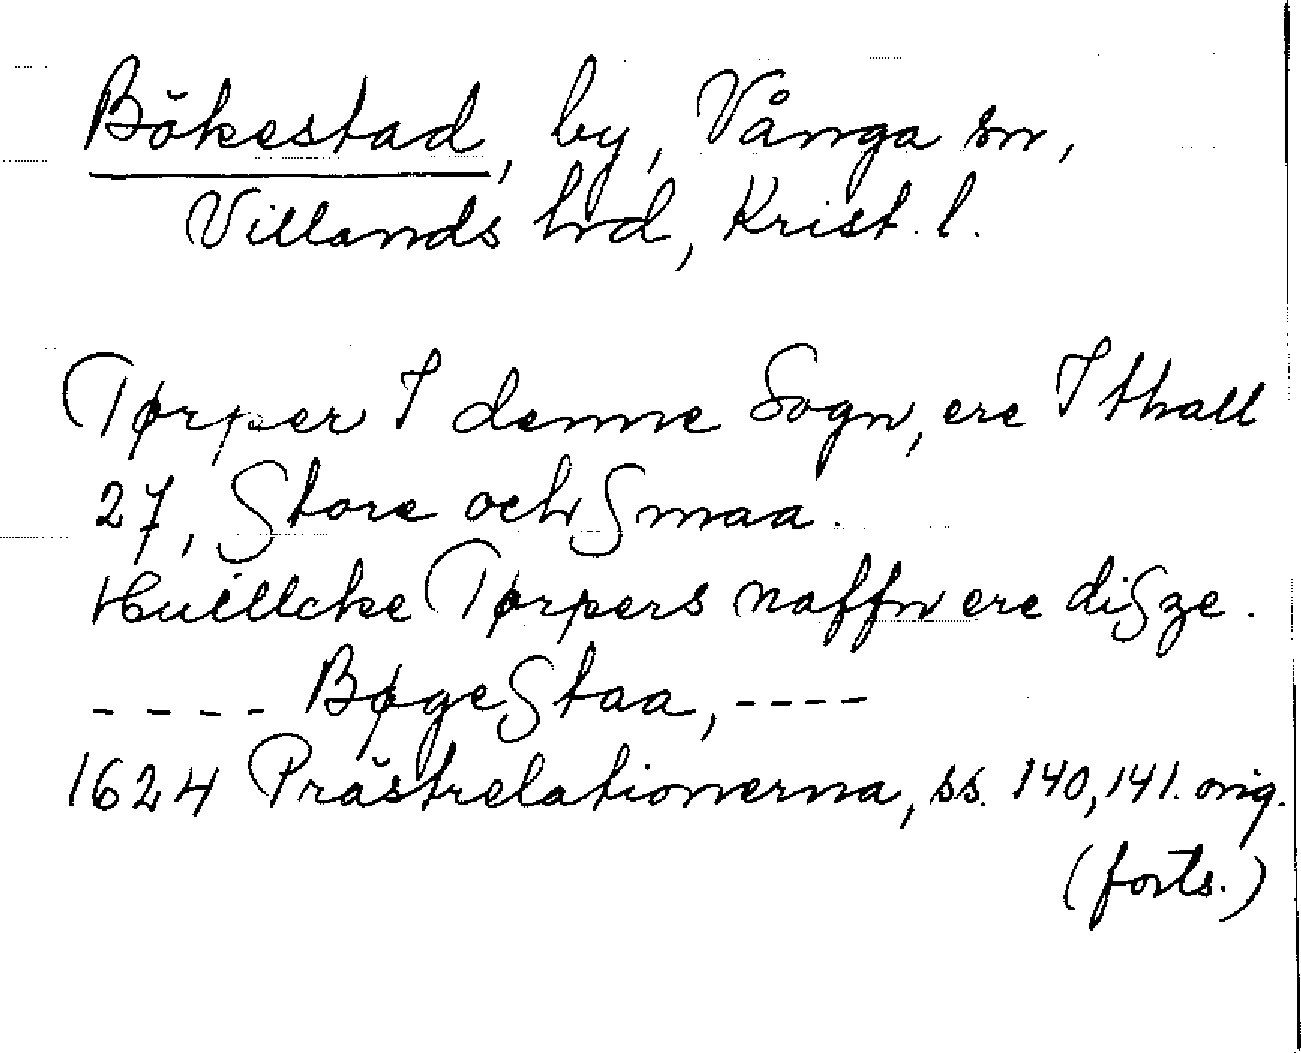 Bökestad, by, Vånga sn,
Villands hd, Krist. l.
Tørper I denne Sogn, ere I thall
27, Store och Smaa.
Huillcke Tørpers naffn ere diSze.
---- BøgeStaa, ----
1624 Prästrelationerna, ss. 140, 141. orig.
(forts.)